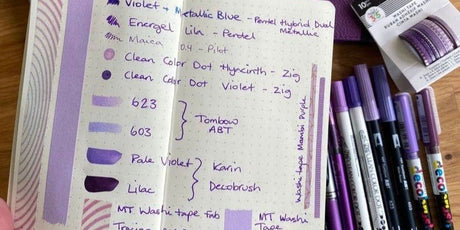 Violet + Metallic Blue - Pentel Hybrid Dual
Metallic
Energel Lila - Pentel
Maica 0.4 - Pilot
Clean Color Dot Hyacinth - Zig
Clean Color Dot Violet - Zig
623
603
Tombow
ABT
Pale Violet
Lilac
Karin
Decobrush
Washi tape Mambi Purple
MT Washi tape Fab
MT Washi
Tape